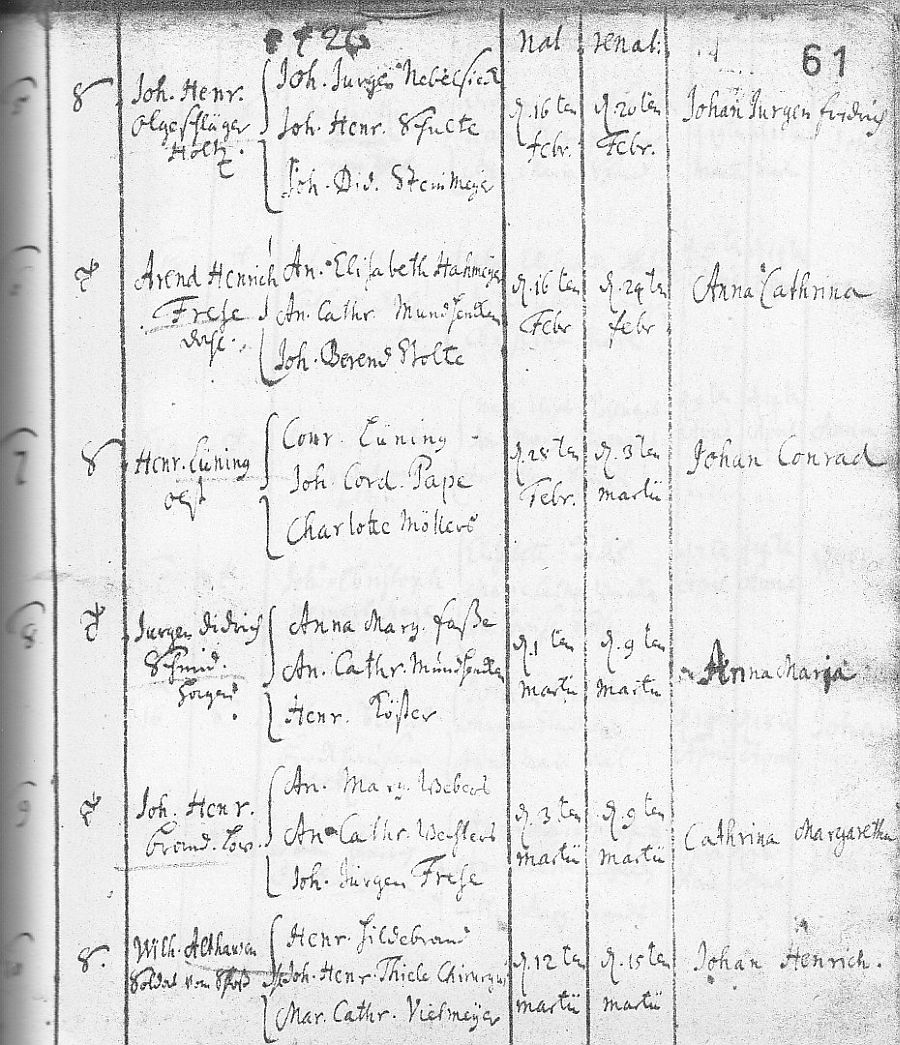 nat: renat: 61
Joh. Henr.
Holtz.
Joh. Jurgen Nebelsieck
Joh. Henr. Schulte
Joh. Did. Steinmeyer
d. 16 ten
Febr.
d. 20 ten
Febr.
Johan Jurgen Fridrich
Arend Henrich
Frese
An. Elisabeth Hahmeyer
An. Cathr.
Joh. Berend Stolte
d. 16 ten
Febr
d. 24 ten
febr
Anna Cathrina
Henr. Lüning
Conr. Lüning
Joh. Cord. Pape
Charlotte Möllers
d. 28 ten
Febr.
d. 3 ten
martii
Johan Conrad
Jurgen Didrich
Schmid.
Anna Mary. Faße
An. Cathr.
Henr. Köster
d. 1 ten
martii
d. 9 ten
martii
Anna Maria
Joh. Henr.
An. Mary. Webers
An. Cathr.
Joh. Jürgen Frese
d. 3 ten
martii
d. 9 ten
martii
Cathrina Margaretha
Wilh. Althausen
Soldat vom
Henr. Hildebrand
Joh. Henr. Thiele Chirurgus
Mar. Cathr. Vietmeyer
d. 12 ten
martii
d. 15 ten
martii
Johan Henrich.